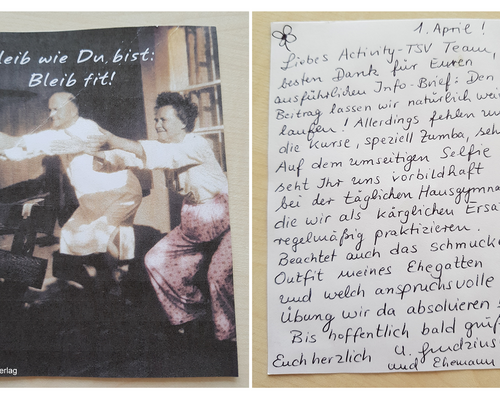 leib wie Du bist:
Bleib fit!
erlag
1. April!
Liebes Activity-TSV Team,
besten Dank für Euren
ausführlichen Info-Brief: Den
Beitrag lassen wir natürlich wei
laufen! Allerdings fehlen un
die Kurse, speziell Zumba, seh
Auf dem umseitigen Selfie
seht Ihr uns vorbildhaft
bei der täglichen Hausgymna
die wir als kärglichen Ersa
regelmäßig praktizieren.
Beachtet auch das schmucke
Outfit meines Ehegatten
und welch anspruchsvolle
Übung wir da absolvieren
Bis hoffentlich bald grüß
Euch herzlich U.
und Ehemann